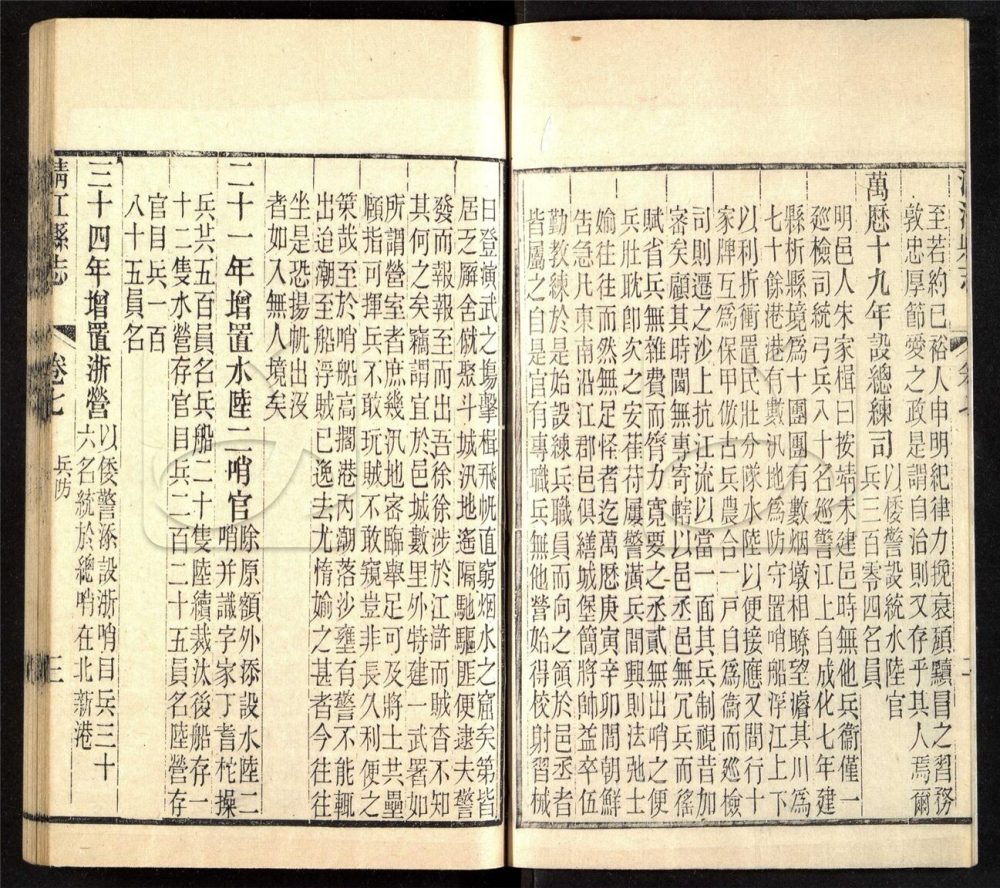 至若約已裕人申明紀律力挽衰頹黷冒之習務
敦忠厚節愛之政是謂自治則又存乎其人焉爾
萬曆十九年設總練司以倭警設統水陸官
兵三百零四名員
明邑人朱家楫曰按靖未建邑時無他兵衞僅一
廵檢司統弓兵入十名廵警江上自成化七年建
縣析縣境爲十團團有數烟墩相瞭望濬其川爲
七十餘港港有數汛地爲防守置哨船浮江上下
以利折衝置民壯分隊水陸以便接應又間行十
家牌互爲保甲倣古兵農合一戸自爲衞而廵檢
司則遷之沙上抗江流以當一面其兵制視昔加
密矣顧其時閫無專寄轄以邑丞邑無冗兵而徭
賦省兵無雜費而膂力寛要之丞貳無出哨之便
兵壯耽卽次之安萑苻屢警潢兵間興則法弛士
婾往往而然無足怪者迄萬曆庚寅辛卯間朝鮮
告急凡東南沿江郡邑俱繕城堡簡將帥益卒伍
勤教練於是始設練兵職員而向之領於邑丞者
皆屬之自是官有專職兵無他營始得校射習械
日登演武之塲擊楫飛帆直窮烟水之窟矣第皆
居之廨舍僦聚斗城汛地遙隔馳驅匪便逮夫警
發而報報至而出吾徐徐涉於江滸而賊杳不知
其何之矣竊謂宜於邑城數里外特建一武署如
所謂營室者庶幾汛地密臨舉足可及將士共壘
顧指可揮兵不敢玩賊不敢窺豈非長久利便之
䇿哉至於哨船高擱港丙潮落沙壅有警不能輒
出迨潮至船浮賊已逸去尤惰婾之甚者今往往
坐是恐揚帆出沒
者如入無人境矣
二十一年增置水陸二哨官除原額外添設水陸二
哨并識字家丁耆柁操
兵共五百員名兵船二十隻陸續裁汰後船存一
十二隻水營存官目兵二百二十五員名陸營存
官目兵一百
八十五員名
三十四年增置浙營以倭警添設浙哨目兵三十
六名統於總哨在北新港
靖江縣志
卷七
兵防
三